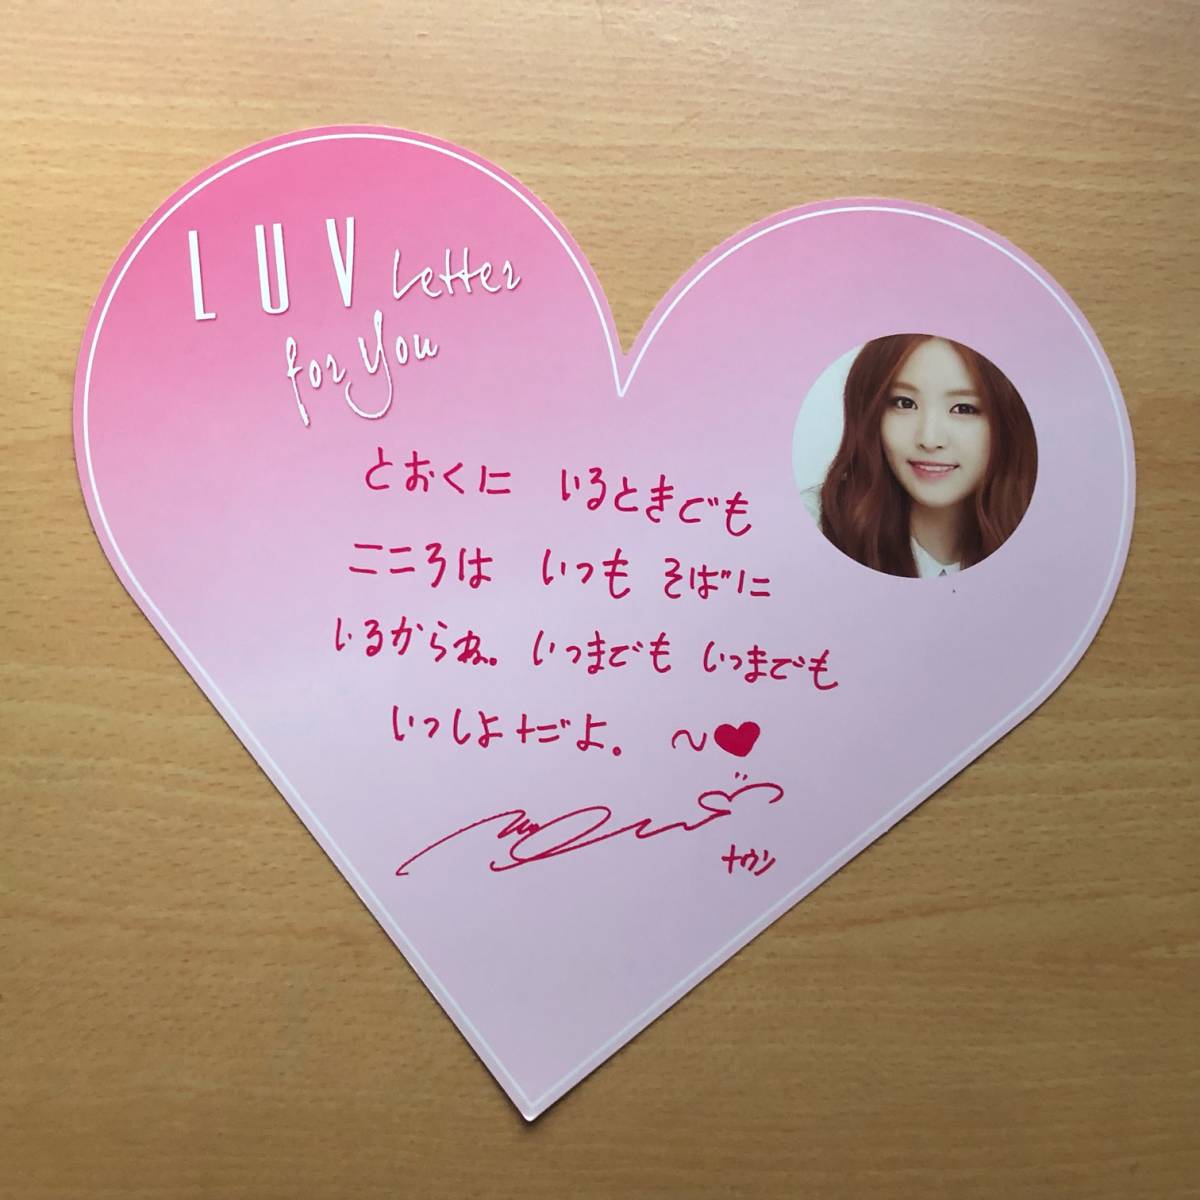 LUV Letter
for You
とおくに いるときでも
こころは いつも そばに
いるからね。いつまでも いつまでも
いっしょだよ。 ～♥
ナウン